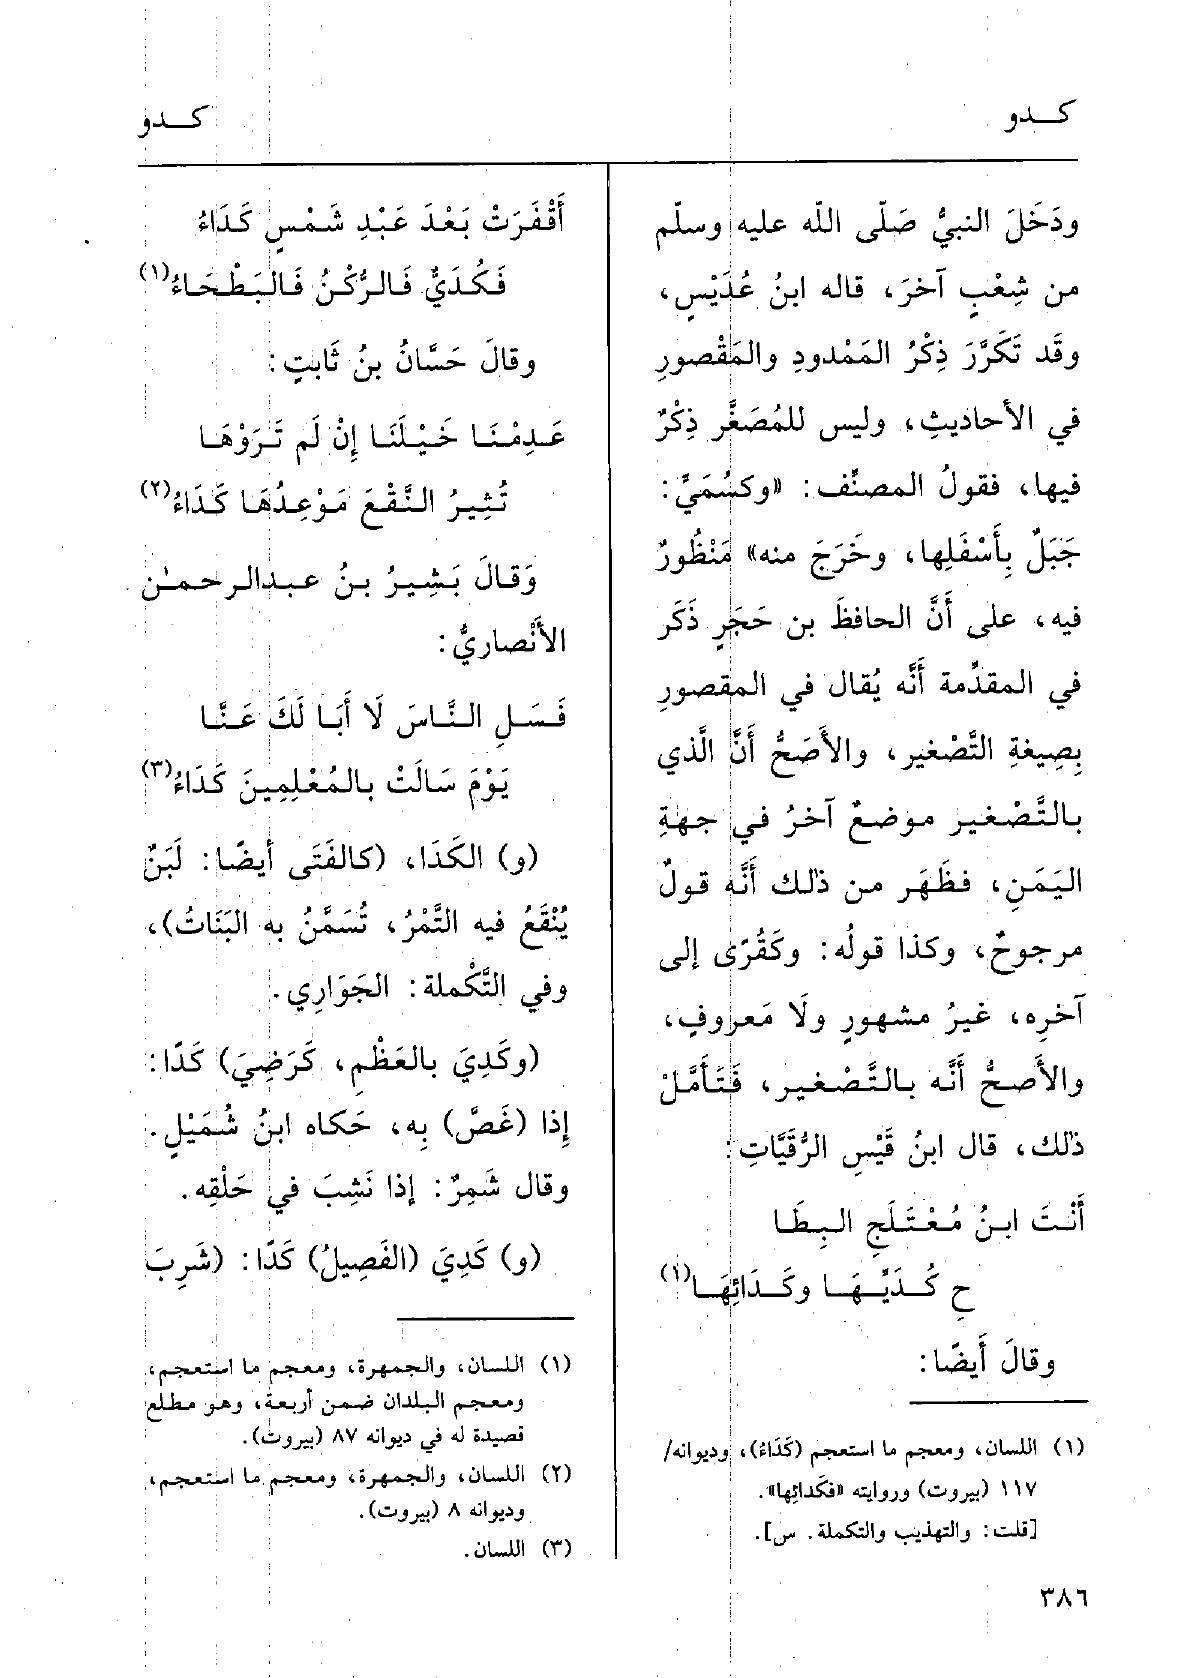 كدو
كدو
ودَخَلَ النبيُّ صَلّى اللّه عليه وسلّم
من شِعْبٍ آخرَ، قاله ابنُ عُدَيْسٍ،
وقَد تَكَرَّرَ ذِكْرُ المَمْدودِ والمَقْصورِ
في الأَحاديثِ، وليس للمُصَغَّر ذِكْرٌ
فيها، فقولُ المصنِّف: «وكسُمَيٍّ:
جَبَلٌ بِأَسْفَلِها، وخَرَجَ منه» مَنْظُورٌ
فيه، على أَنَّ الحافظَ بن حَجَرٍ ذَكَر
في المقدِّمة أَنَّه يُقال في المقصورِ
بِصِيغةِ التَّصْغير، والأَصَحُّ أَنَّ الَّذي
بالتَّصْغير موضعٌ آخرُ في جهةِ
اليَمَنِ، فظَهَر من ذلك أَنَّه قولٌ
مرجوحٌ، وكذا قولُه: وكَقُرًى إلى
آخرِه، غيرُ مشهورٍ ولَا مَعروفٍ،
والأَصحُّ أَنَّه بالتَّصْغير، فَتَأَمَّلْ
ذلك، قال ابنُ قَيْسِ الرُّقَيَّاتِ:
أَنْتَ ابنُ مُعْتَلَجِ البِطَا
حِ كُدَيِّهَا وكَدَائِهَا(١)
وقالَ أَيضًا:
(١) اللسان، ومعجم ما استعجم (كَدَاءُ)، وديوانه/
١١٧ (بيروت) وروايته «فكَدائِها».
[قلت: والتهذيب والتكملة. س].
أَقْفَرَتْ بَعْدَ عَبْدِ شَمْسٍ كَدَاءُ
فَكُدَيٌّ فَالرُّكْنُ فَالبَطْحَاءُ(١)
وقالَ حَسَّانُ بنُ ثَابتٍ:
عَدِمْنَا خَيْلَنَا إِنْ لَم تَرَوْهَا
تُثِيرُ النَّقْعَ مَوْعِدُهَا كَدَاءُ(٢)
وَقالَ بَشِيرُ بنُ عبدالرحمٰن
الأَنْصاريُّ:
فَسَلِ النَّاسَ لَا أَبَا لَكَ عَنَّا
يَوْمَ سَالَتْ بالمُعْلِمِينَ كَدَاءُ(٣)
(و) الكَدَا، (كالفَتَى أَيضًا: لَبَنٌ
يُنْقَعُ فيه التَّمْرُ، تُسَمَّنُ به البَنَاتُ)،
وفي التَّكْملة: الجَوَارِي.
(وكَدِيَ بالعَظْمِ، كَرَضِيَ) كَدًا:
إِذا (غَصَّ) بِه، حَكاه ابنُ شُمَيْلٍ.
وقال شَمِرٌ: إذا نَشِبَ في حَلْقِه.
(و) كَدِيَ (الفَصِيلُ) كَدًا: (شَرِبَ
(١) اللسان، والجمهرة، ومعجم ما استعجم،
ومعجم البلدان ضمن أربعة، وهو مطلع
قصيدة له في ديوانه ٨٧ (بيروت).
(٢) اللسان، والجمهرة، ومعجم ما استعجم،
وديوانه ٨ (بيروت).
(٣) اللسان.
٣٨٦